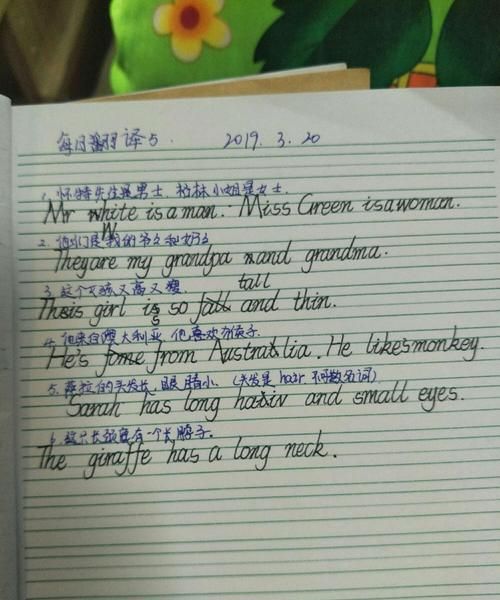 每日翻译5. 2019.3.20
1. 怀特先生是男士. 格林小姐是女士.
Mr White is a man. Miss Green is a woman.
2. 他们是我的爷爷和奶奶
They are my grandpa and grandma.
3. 这个女孩又高又瘦.
This girl is so tall and thin.
4. 他来自澳大利亚 他喜欢猴子.
He's from Australia. He likes monkey.
5. 萨拉的头发长, 眼睛小. (头发是 hair 不可数名词)
Sarah has long hair and small eyes.
6. 这只长颈鹿有一个长脖子.
The giraffe has a long neck.